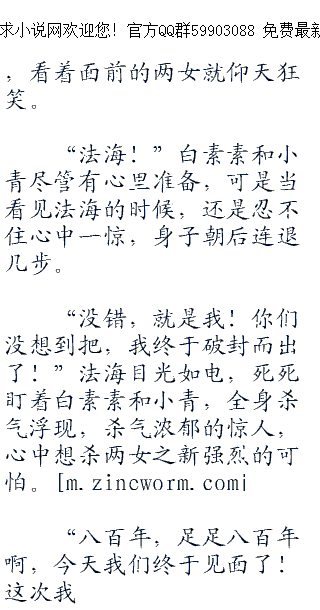 求小说网欢迎您！官方QQ群59903088 免费最新
，看着面前的两女就仰天狂
笑。
“法海！”白素素和小
青尽管有心里准备，可是当
看见法海的时候，还是忍不
住心中一惊，身子朝后连退
几步。
“没错，就是我！你们
没想到把，我终于破封而出
了！”法海目光如电，死死
盯着白素素和小青，全身杀
气浮现，杀气浓郁的惊人，
心中想杀两女之新强烈的可
怕。[m.zincworm.comi
“八百年，足足八百年
啊，今天我们终于见面了！
这次我